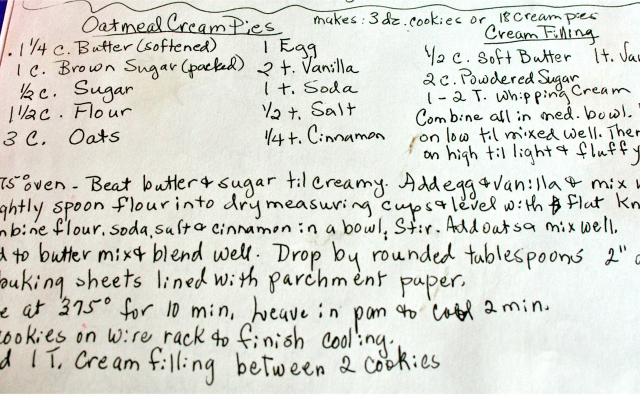 Oatmeal Cream Pies
makes: 3 dz. cookies or 18 cream pies
1 1/4 c. Butter (softened)
1 c. Brown Sugar (packed)
1/2 c. Sugar
1 1/2 c. Flour
3 c. Oats
1 Egg
2 t. Vanilla
1 t. Soda
1/2 t. Salt
1/4 t. Cinnamon
Cream Filling
1/2 c. Soft Butter 1 t. Va
2 c. Powdered Sugar
1-2 T. Whipping Cream
Combine all in med. bowl.
on low til mixed well. Then
on high til light & fluffy
75° oven - Beat butter & sugar til creamy. Add egg & vanilla & mix
ghtly spoon flour into dry measuring cups & level with flat kn
mbine flour, soda, salt & cinnamon in a bowl, Stir. Add oats & mix well.
d to butter mix & blend well. Drop by rounded tablespoons 2"
baking sheets lined with parchment paper.
e at 375° for 10 min. Leave in pan to cool 2 min.
cookies on wire rack to finish cooling.
d 1 T. Cream filling between 2 cookies